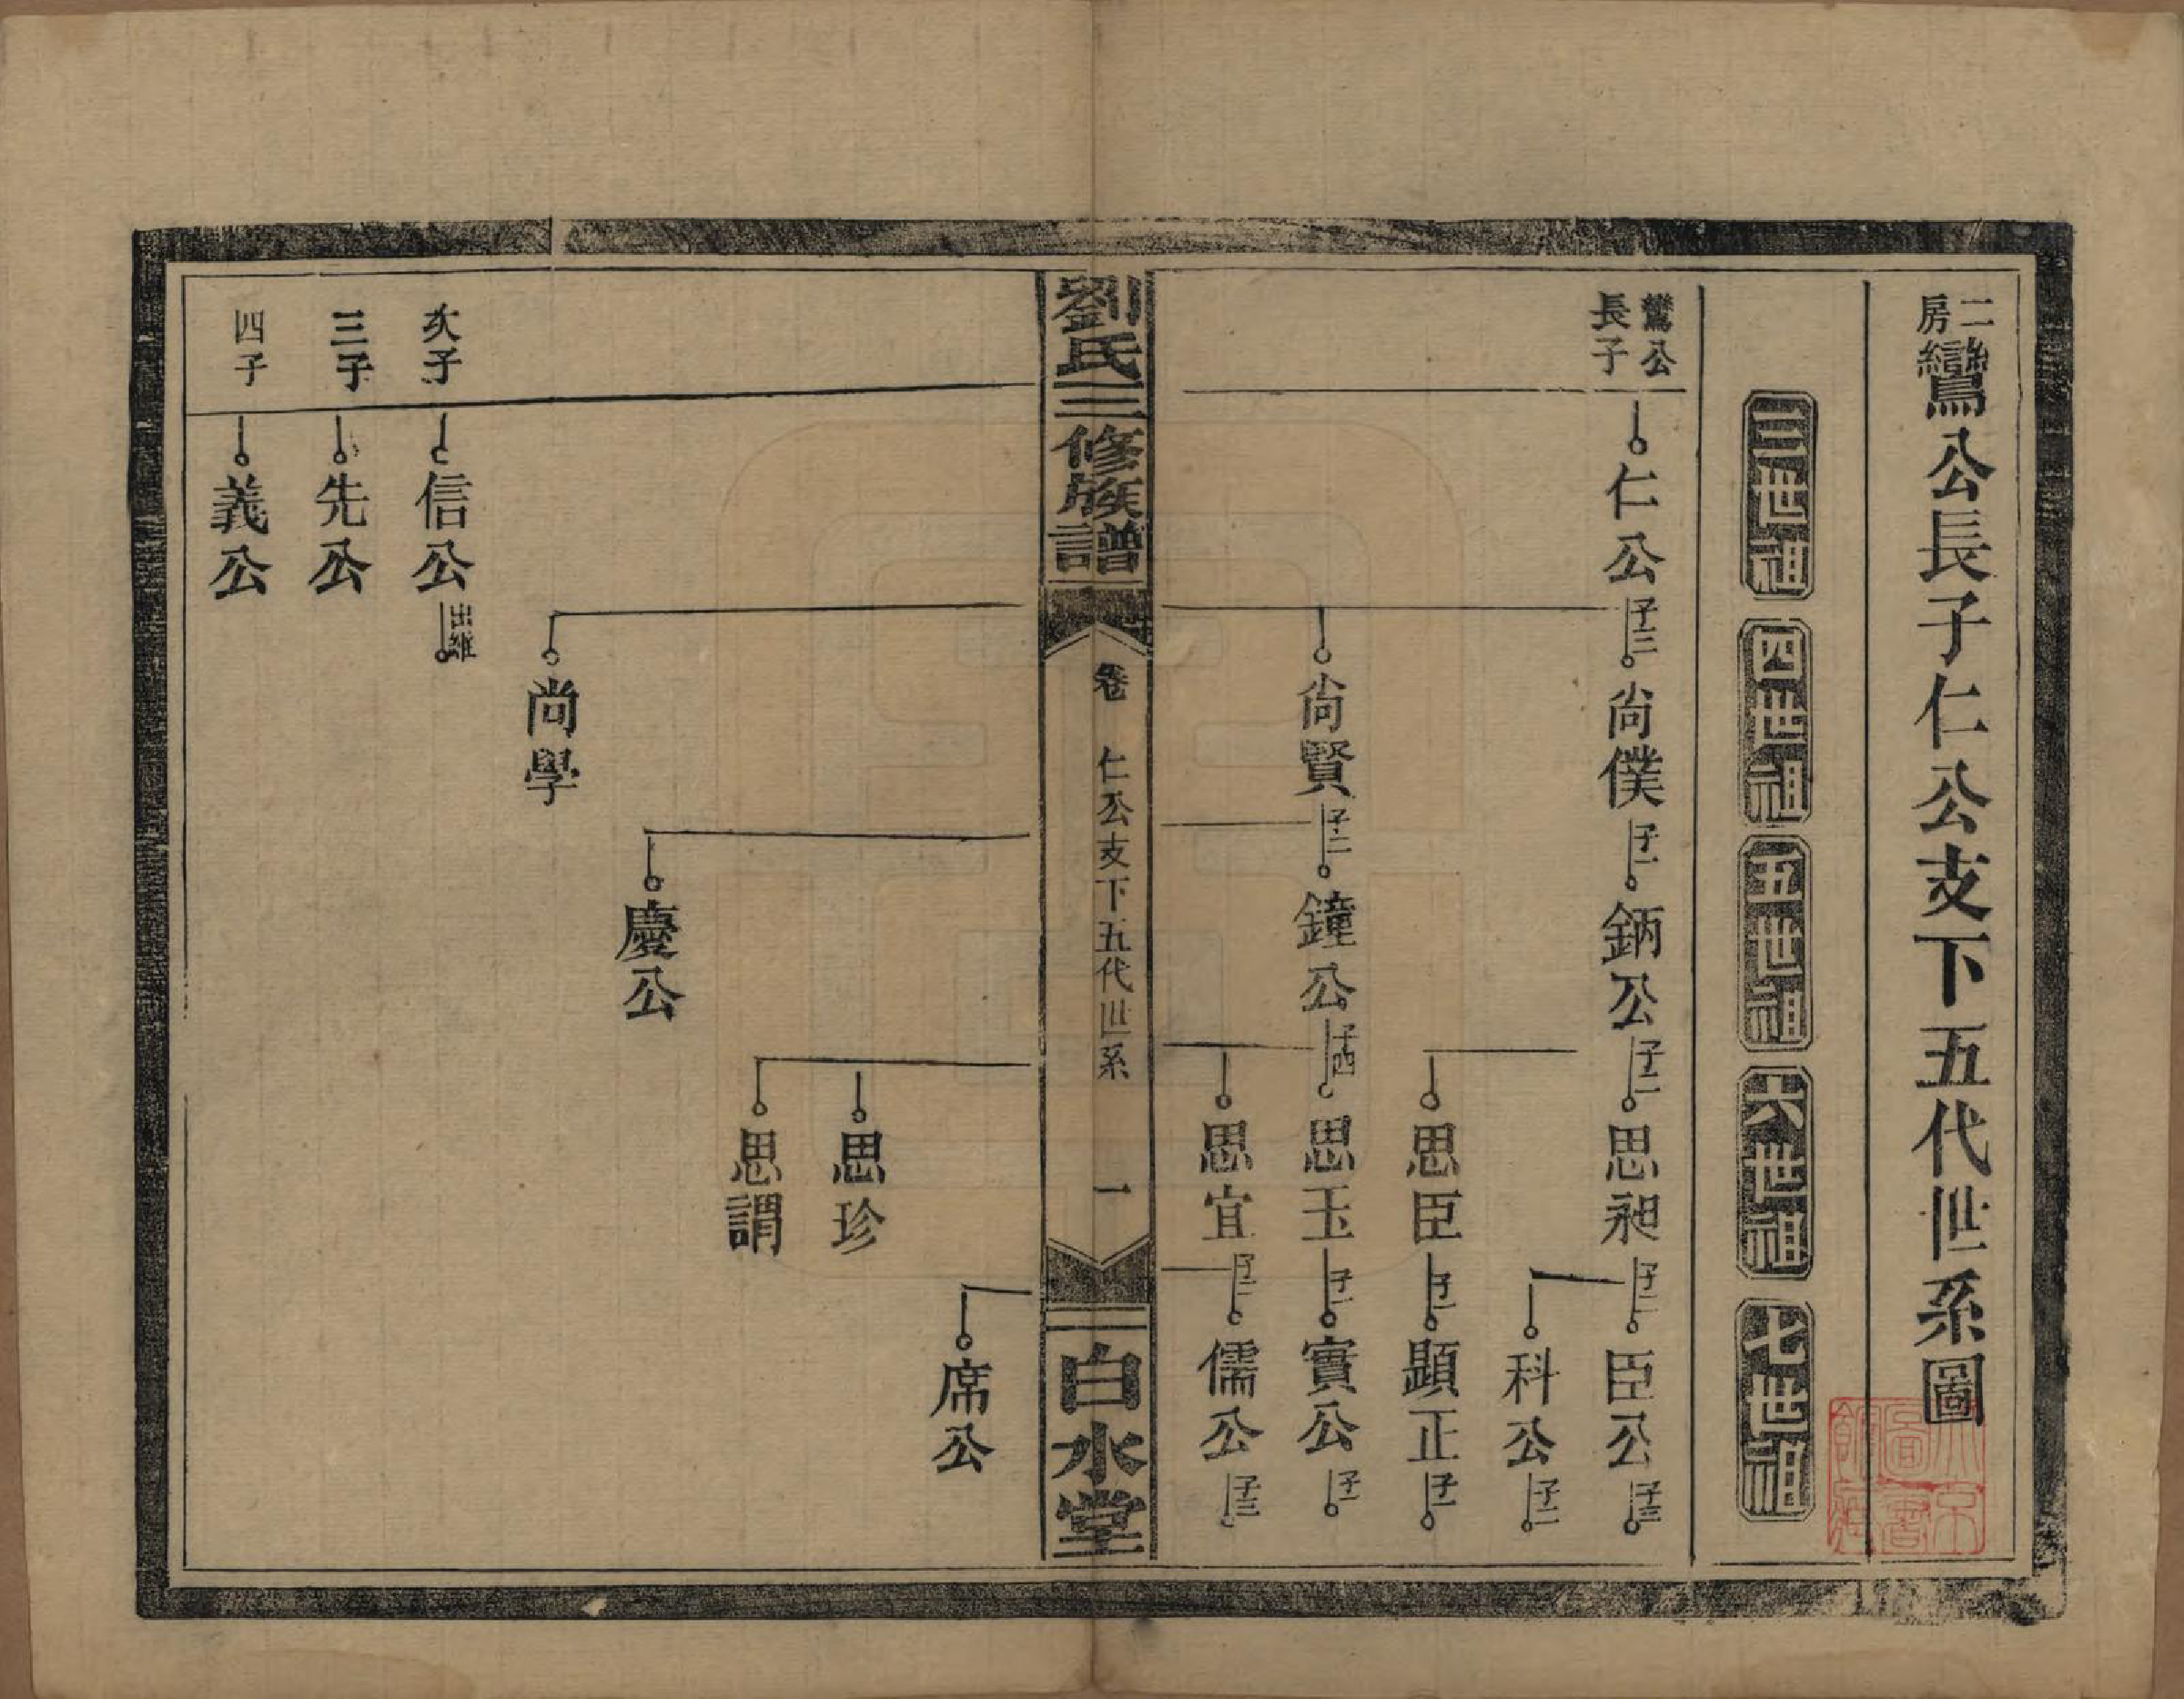 二房鸞公長子仁公支下五代世系圖
三世祖
四世祖
五世祖
六世祖
七世祖
鸞公長子
仁公 子三
尚僕 子一
鈵公 子二
思昶 子二
臣公 子三
科公 子二
思臣 子一
顕正 子一
尚賢 子二
鐘公 子四
思玉 子一
實公 子一
思宜 子二
儒公 子三
劉氏三修族譜
卷
仁公支下五代世系
一
白水堂
席公
思珍
思謂
慶公
尚學
次子
信公 出繼
三子
先公
四子
義公